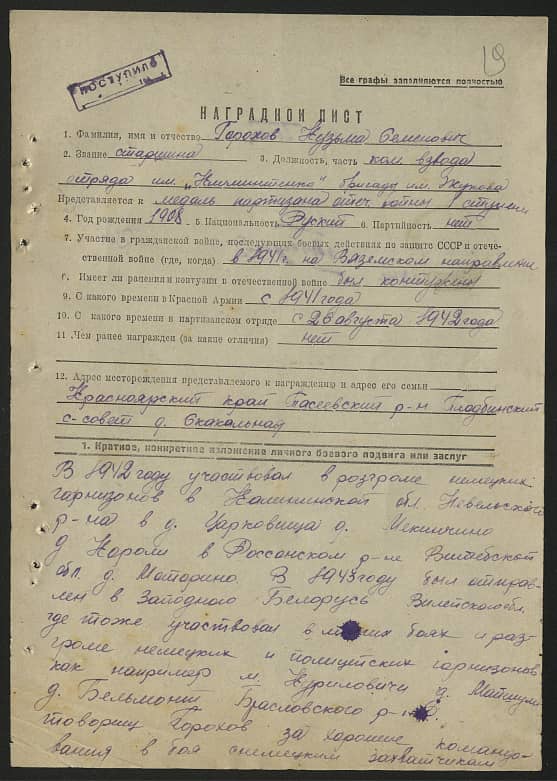 19
ПОСТУПИЛО
Все графы заполняются полностью
НАГРАДНОЙ ЛИСТ
1. Фамилия, имя и отчество Горохов Кузьма Семенович
2. Звание старшина 3. Должность, часть ком взвода
отряда им. бригады им. Жукова
Представляется к медаль партизана отеч. войны I ступени
4. Год рождения 1908 5. Национальность Руский 6. Партийность нет
7. Участие в гражданской войне, последующих боевых действиях по защите СССР и отече-
ственной войне (где, когда) в 1941г. на Вяземском направлении
8. Имеет ли ранения и контузии в отечественной войне был контужен
9. С какого времени в Красной Армии с 1941 года
10. С какого времени в партизанском отряде с 26 августа 1942 года
11. Чем ранее награжден (за какие отличия) нет
12. Адрес месторождения представляемого к награждению и адрес его семьи
Красноярский край Тасеевский р-н
с-совет д. Скакальная
1. Краткое, конкретное изложение личного боевого подвига или заслуг
В 1942 году участвовал в розгроме немецких
гарнизонов в Калининской обл. Невельского
р-на в д. Церковища д.
д. Короли в Россонском р-не Витебской
обл. д. Моторино. В 1943 году был отправ-
лен в Западную Беларусь Вилейской обл.
где тоже участвовал в боях и раз-
громе немецких и полицейских гарнизонов
как например м. Куриловичи д.
д. Бельмонты Брасловского р-
товарищ Горохов за хорошие командо-
вания в боя снемецким захватчикам